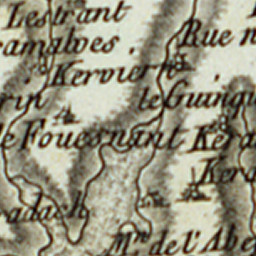 Lestrant
Rue n
ramalves.
Kerviern
rin
le Guingu
le Fouesnant
Kera
Kera
adach
Mⁱⁿ de l'Abe